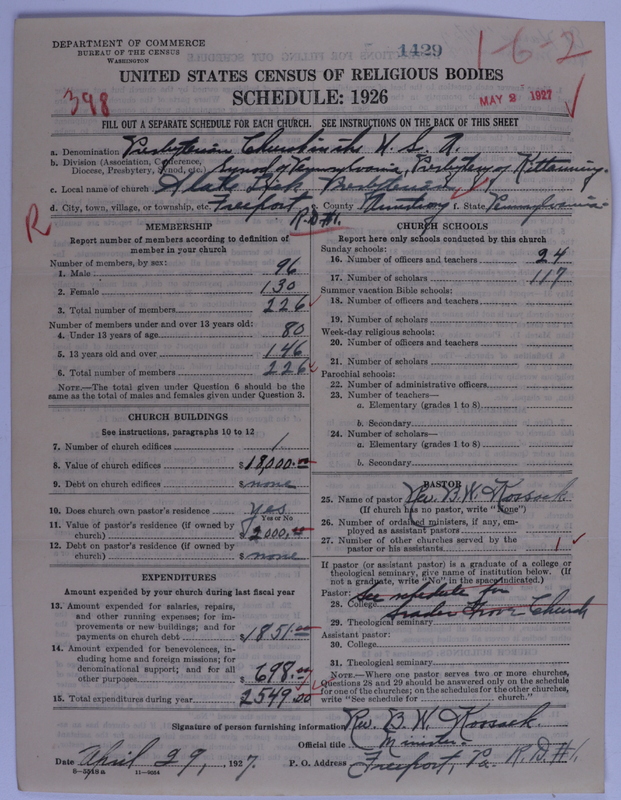 DEPARTMENT OF COMMERCE
BUREAU OF THE CENSUS
WASHINGTON
1429
1-6-2
UNITED STATES CENSUS OF RELIGIOUS BODIES
SCHEDULE: 1926
398
MAY 2 1927
FILL OUT A SEPARATE SCHEDULE FOR EACH CHURCH. SEE INSTRUCTIONS ON THE BACK OF THIS SHEET
a. Denomination Presbyterian Church in the U. S. A.
b. Division (Association, Conference, Diocese, Presbytery, Synod, etc.) Synod of Pennsylvania, Presbytery of Kittanning.
c. Local name of church Slate Lick Presbyterian
d. City, town, village, or township, etc. Freeport e. County Armstrong f. State Pennsylvania
R
R.D.#1.
MEMBERSHIP
Report number of members according to definition of
member in your church
Number of members, by sex:
1. Male 96
2. Female 130
3. Total number of members 226
Number of members under and over 13 years old:
4. Under 13 years of age 80
5. 13 years old and over 146
6. Total number of members 226
NOTE.—The total given under Question 6 should be the
same as the total of males and females given under Question 3.
CHURCH BUILDINGS
See instructions, paragraphs 10 to 12
7. Number of church edifices 1
8. Value of church edifices $18,000.00
9. Debt on church edifices $none
10. Does church own pastor's residence yes
Yes or No
11. Value of pastor's residence (if owned by
church) $2000.00
12. Debt on pastor's residence (if owned by
church) $none
EXPENDITURES
Amount expended by your church during last fiscal year
13. Amount expended for salaries, repairs,
and other running expenses; for im-
provements or new buildings; and for
payments on church debt $1851.00
14. Amount expended for benevolences, in-
cluding home and foreign missions; for
denominational support; and for all
other purposes $698.00
15. Total expenditures during year 2549.00
CHURCH SCHOOLS
Report here only schools conducted by this church
Sunday schools:
16. Number of officers and teachers 24
17. Number of scholars 117
Summer vacation Bible schools:
18. Number of officers and teachers
19. Number of scholars
Week-day religious schools:
20. Number of officers and teachers
21. Number of scholars
Parochial schools:
22. Number of administrative officers
23. Number of teachers—
a. Elementary (grades 1 to 8)
b. Secondary
24. Number of scholars—
a. Elementary (grades 1 to 8)
b. Secondary
PASTOR
25. Name of pastor Rev. B.W. Kossack
(If church has no pastor, write "None")
26. Number of ordained ministers, if any, em-
ployed as assistant pastors
27. Number of other churches served by the
pastor or his assistants 1
If pastor (or assistant pastor) is a graduate of a college or
theological seminary, give name of institution below. (If
not a graduate, write "No" in the space indicated.)
Pastor: See schedule for
28. College Srader Grove Church
29. Theological seminary
Assistant pastor:
30. College
31. Theological seminary
NOTE.—Where one pastor serves two or more churches,
Questions 28 and 29 should be answered only on the schedule
for one of the churches; on the schedules for the other churches,
write "See schedule for church."
Signature of person furnishing information Rev. B. W. Kossack.
Official title Minister.
Date April 29, 1927. P. O. Address Freeport, Pa. R.D.#1.
8—5518a 11—9054